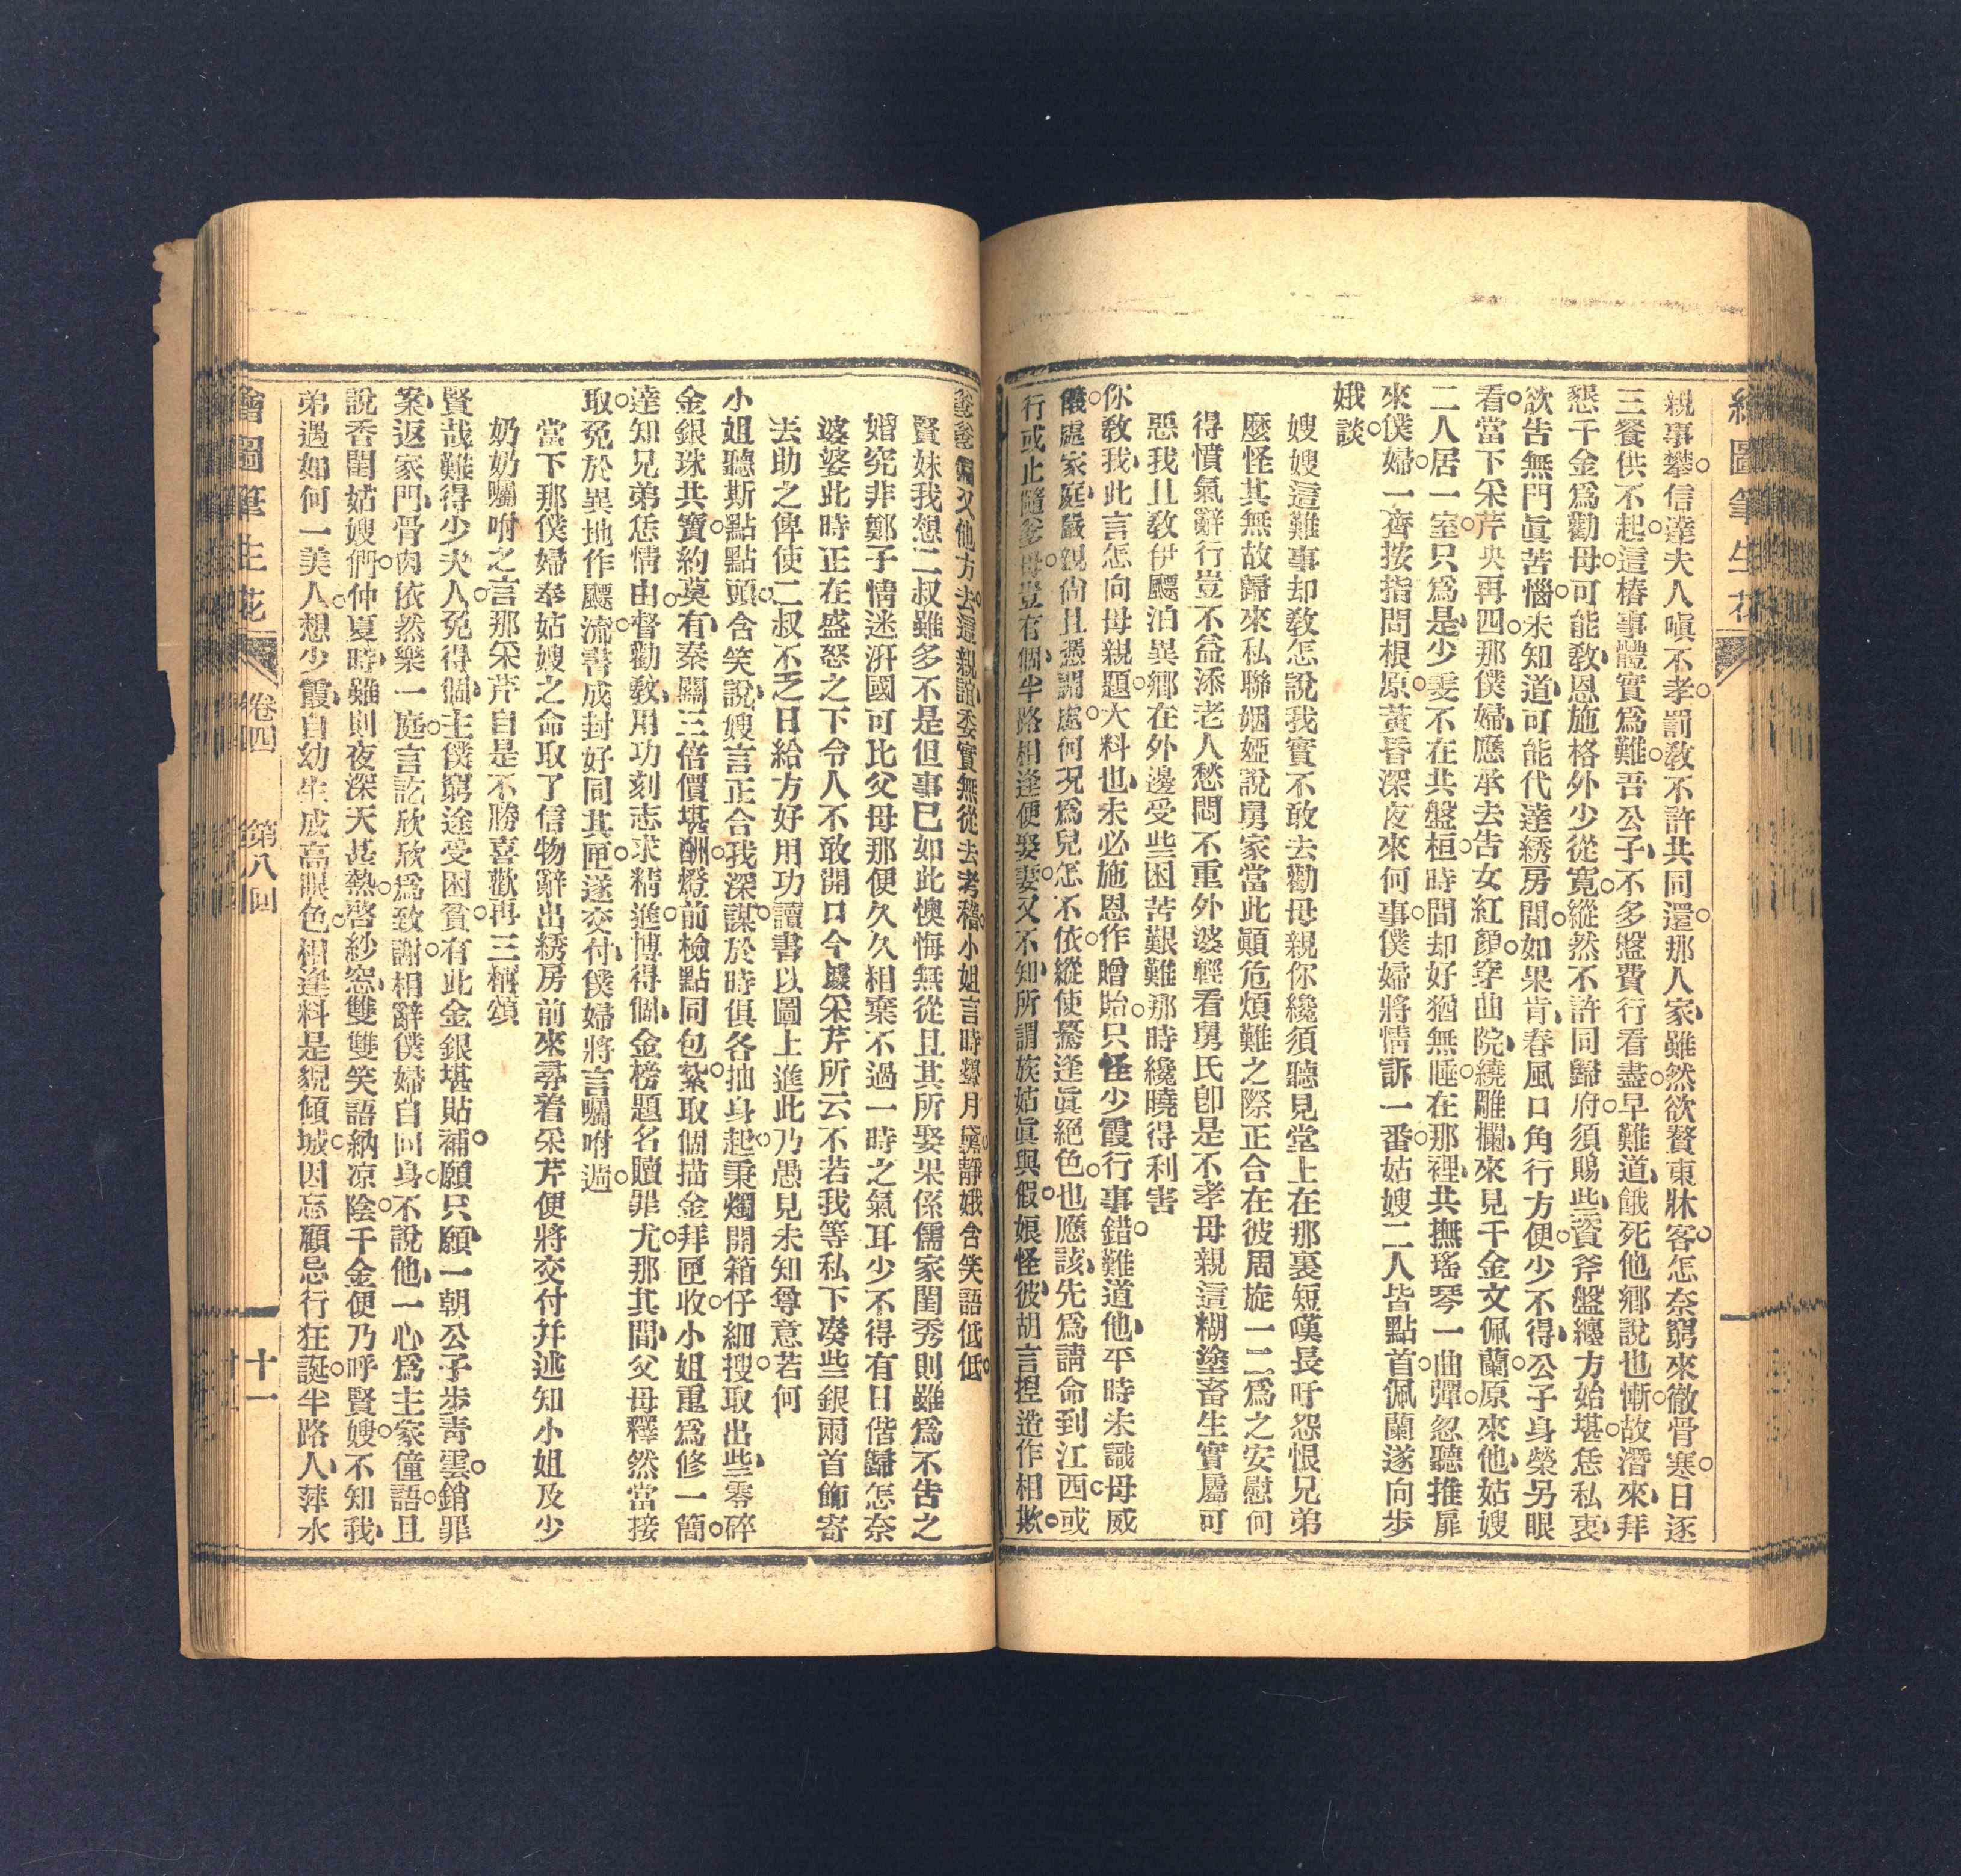 繪圖筆生花
親事攀。信達夫人嗔不孝。罰敎不許共同還。那人家、雖然欲贅東牀客。怎奈窮來徹骨寒。日逐
三餐供不起。這樁事體實爲難。吾公子、不多盤費行看盡。早難道、餓死他鄉說也慚。故潛來、拜
懇千金爲勸母。可能敎、恩施格外少從寬。縱然不許同歸府。須賜些、資斧盤纏方始堪。恁私衷、
欲告無門眞苦惱。未知道、可能代達綉房間。如果肯、春風口角行方便。少不得、公子身榮另眼
看。當下采芹央再四。那僕婦、應承去告女紅顏。穿曲院、繞雕欄。來見千金文佩蘭。原來他、姑嫂
二人居一室。只爲是、少雯不在共盤桓。時間却好猶無睡。在那裡、共撫瑤琴一曲彈。忽聽推扉
來僕婦。一齊按指問根原。黃昏深夜來何事。僕婦將情訴一番。姑嫂二人皆點首。佩蘭遂向步
娥談。
嫂嫂這難事却敎怎說我實不敢去勸母親你纔須聽見堂上在那裏短嘆長吁怨恨兄弟
麼怪其無故歸來私聯姻婭說舅家當此顚危煩難之際正合在彼周旋一二爲之安慰何
得憤氣辭行豈不益添老人愁悶不重外婆輕看舅氏卽是不孝母親這糊塗畜生實屬可
惡我且敎伊飃泊異鄕在外邊受些困苦艱難那時纔曉得利害
你敎我、此言怎向母親題。大料也、未必施恩作贈貽。只怪少霞行事錯。難道他、平時未識母威
儀。處家庭、嚴親尙且憑調處。何况爲兒怎不依。縱使驀逢眞絕色。也應該、先爲請命到江西。或
行或止隨爹母。豈有個、半路相逢便娶妻。又不知、所謂族姑眞與假。娘怪彼、胡言揑造作相欺。
爹爹偏又他方去。這親誼、委實無從去考稽。小姐言時顰月黛。靜娥含笑語低低。
賢妹我想二叔雖多不是但事已如此懊悔無從且其所娶果係儒家閨秀則雖爲不告之
婚究非鄭子情迷汧國可比父母那便久久相棄不過一時之氣耳少不得有日偕歸怎奈
婆婆此時正在盛怒之下令人不敢開口今據采芹所云不若我等私下湊些銀兩首飾寄
去助之俾使二叔不乏日給方好用功讀書以圖上進此乃愚見未知尊意若何
小姐聽斯點點頭。含笑說、嫂言正合我深謀。於時俱各抽身起。秉燭開箱仔細搜。取出些、零碎
金銀珠共寶。約莫有、秦關三倍價堪酬。燈前檢點同包紮。取個描金拜匣收。小姐重爲修一簡。
達知兄弟恁情由。督勸敎、用功刻志求精進。博得個、金榜題名贖罪尤。那其間、父母釋然當接
取。免於異地作飃流。書成封好同其匣。遂交付、僕婦將言囑咐過。
當下那僕婦奉姑嫂之命取了信物辭出綉房前來尋着采芹便將交付幷述知小姐及少
奶奶囑咐之言那采芹自是不勝喜歡再三稱頌
賢哉難得少夫人。免得個、主僕窮途受困貧。有此金銀堪貼補。願只願、一朝公子步靑雲。銷罪
案、返家門。骨肉依然樂一庭。言訖欣欣爲致謝。相辭僕婦自回身。不說他、一心爲主家僮語。且
說香閨姑嫂們。仲夏時、雖則夜深天甚熱。啓紗窓、雙雙笑語納凉陰。千金便乃呼賢嫂。不知我、
弟遇如何一美人。想少霞、自幼生成高眼色。相逢料是貌傾城。因忘顧忌行狂誕。半路人、萍水
繪圖筆生花 卷四 第八回 十一